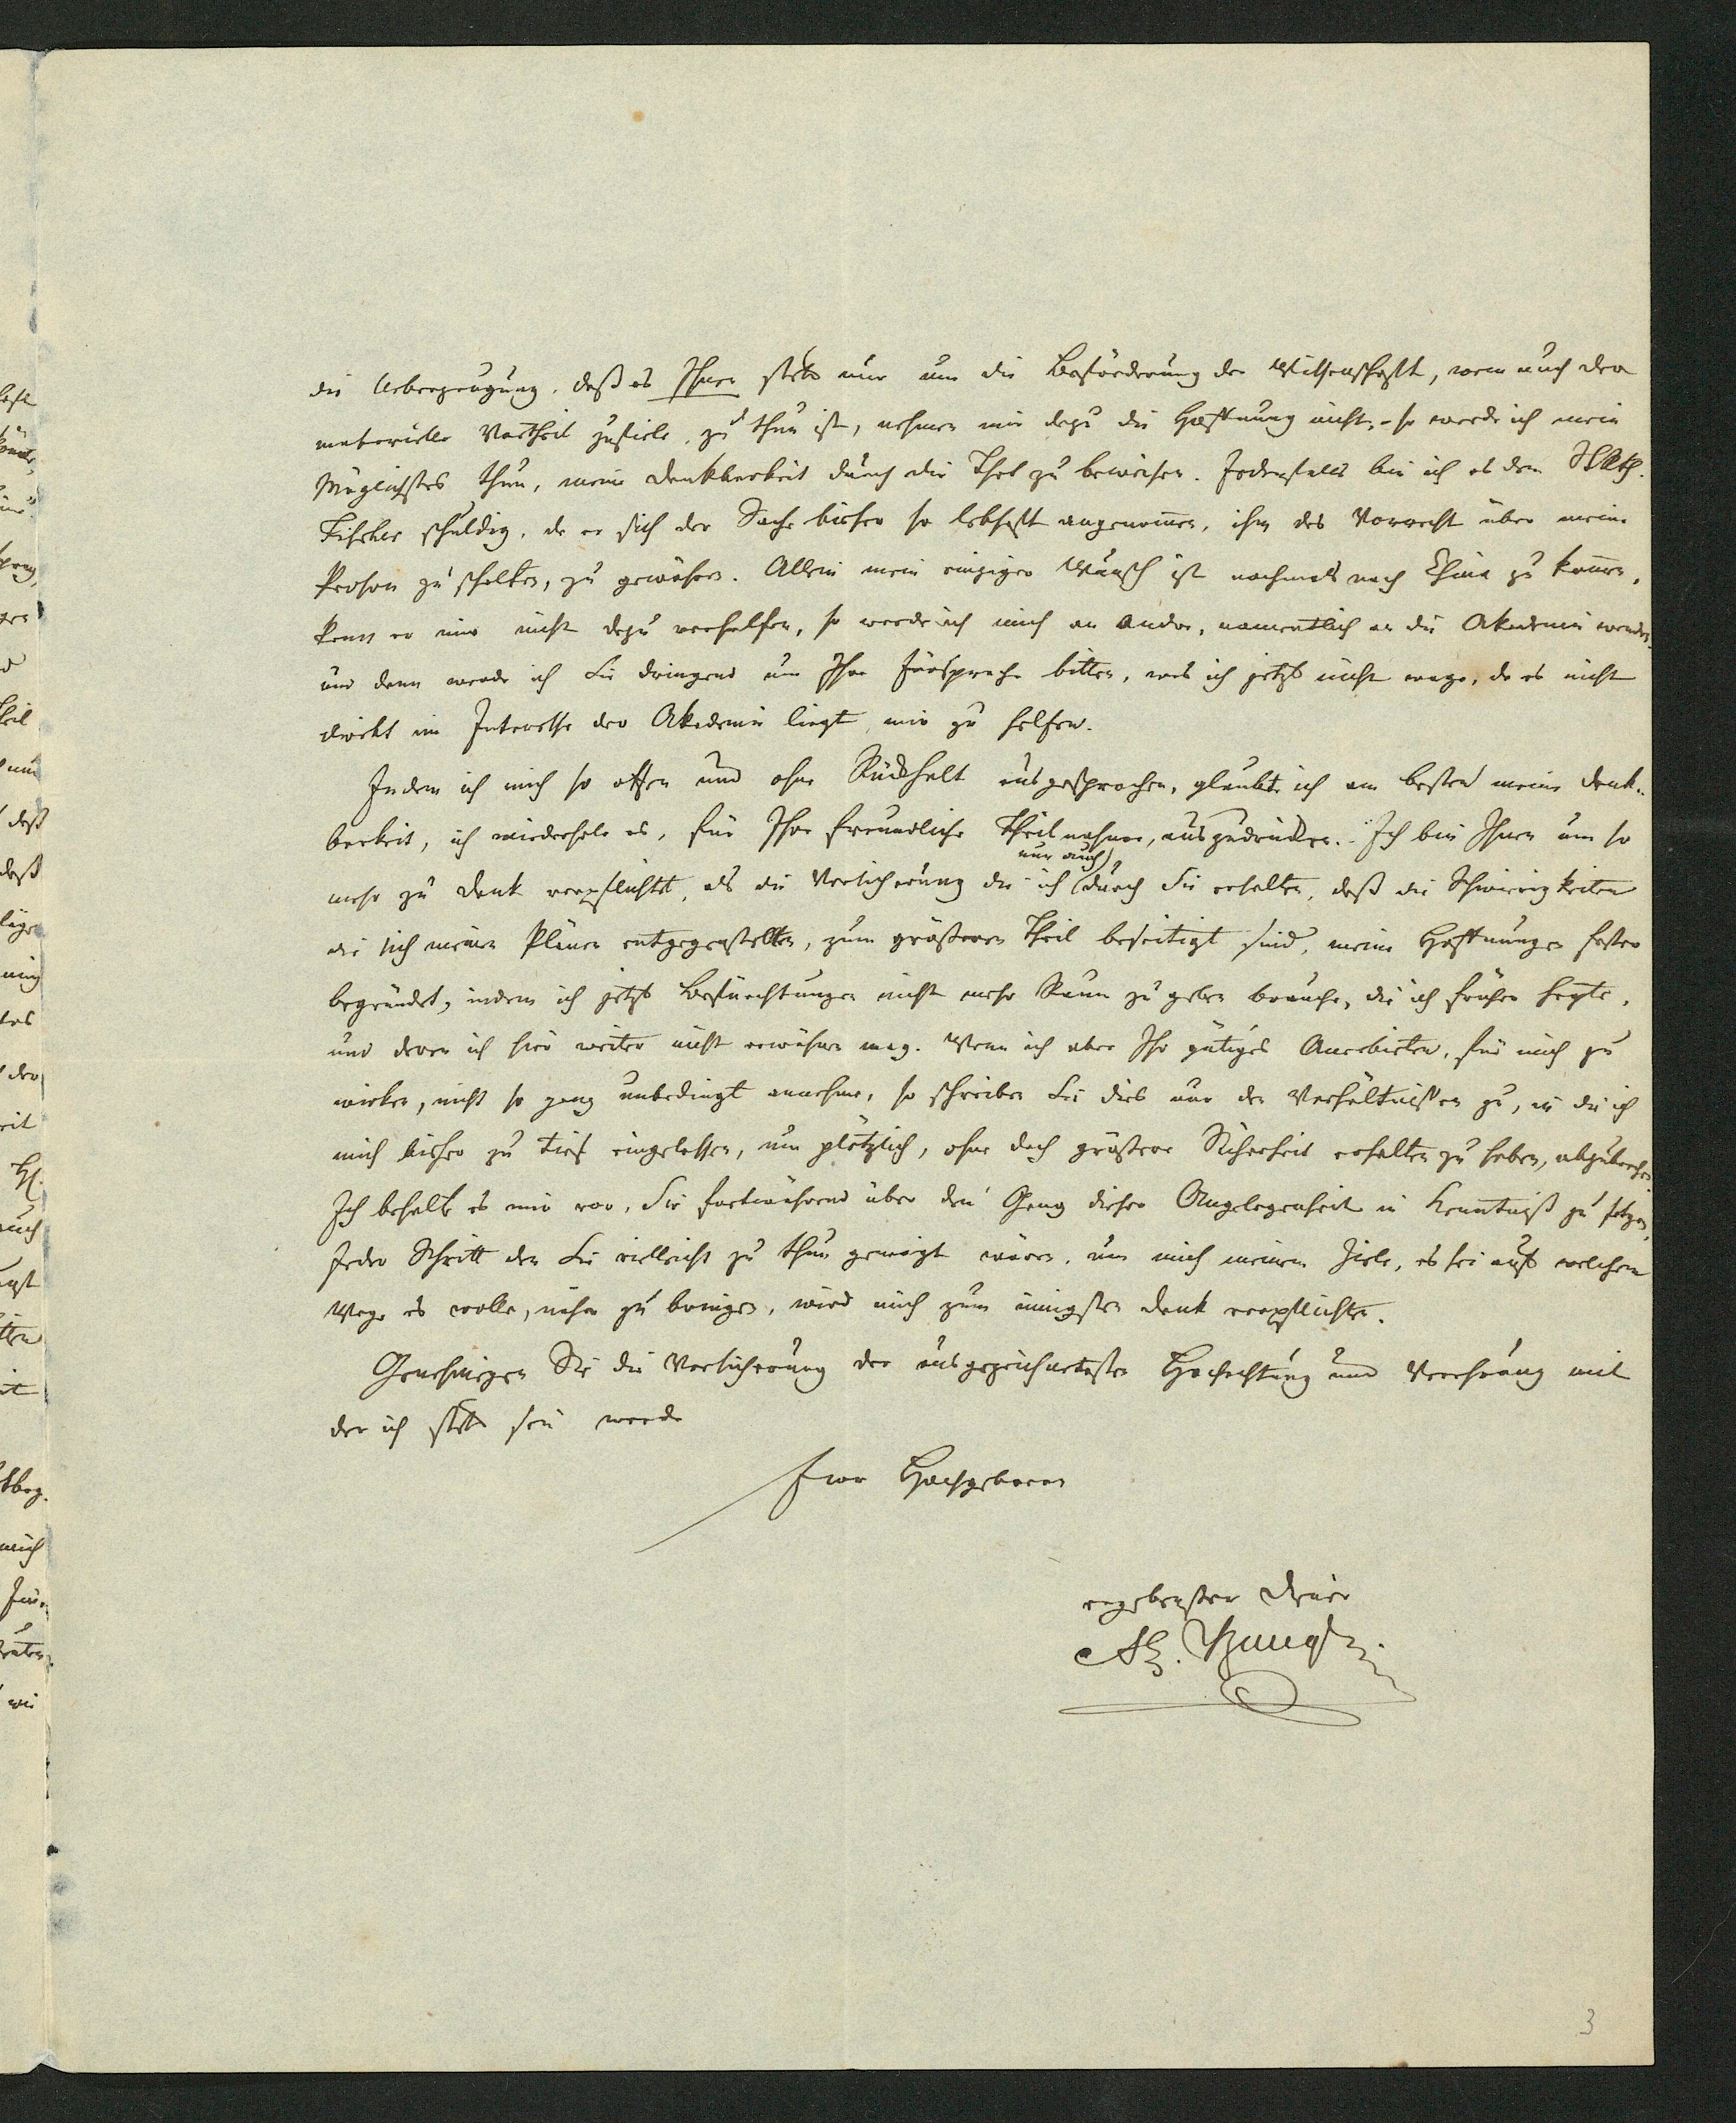 die Ueberzeugung, daß es Ihnen stets nur um die Beförderung der Wissenschaft, wem auch der
materielle Vortheil zufiele, zu thun ist, nehmen mir dazu die Hoffnung nicht, – so werde ich mein
Möglichstes thun, meine Dankbarkeit durch die That zu beweisen. Jedenfalls bin ich es dem StRth.
Fischer schuldig, da er sich der Sache bisher so lebhaft angenom̄en, ihm das Vorrecht über meine
Person zu schalten, zu gewähren. Allein mein einziger Wunsch ist nochmals nach China zu kom̄en,
kann er mir nicht dazu verhelfen, so werde ich mich an Andre, namentlich an die Akademie wenden
und dann werde ich Sie dringend um Ihre Fürsprache bitten, was ich jetzt nicht wage, da es nicht
direkt im Interesse der Akademie liegt mir zu helfen.
Indem ich mich so offen und ohne Rückhalt ausgesprochen, glaubte ich am besten meine Dank-
barkeit, ich wiederhole es, für Ihre freundliche Theilnahme, auszudrücken. Ich bin Ihnen um so
nur auch
mehr zu Dank verpflichtet, als die Versicherung die ich durch Sie erhalten, daß die Schwierigkeiten
die sich meinen Plänen entgegenstellten, zum größeren Theil beseitigt sind, meine Hoffnungen fester
begründet, indem ich jetzt Befürchtungen nicht mehr Raum zu geben brauche, die ich früher hegte,
und deren ich hier weiter nicht erwähnen mag. Wenn ich aber Ihr gütiges Anerbieten, für mich zu
wirken, nicht so ganz unbedingt annehme, so schreiben Sie dies nur den Verhältnißen zu, in die ich
mich bisher zu tief eingelassen, um plötzlich, ohne doch größere Sicherheit erhalten zu haben, abzubrechen
Ich behalte es mir vor, Sie fortwährend über den Gang dieser Angelegenheit in Kenntniß zu setzen,
jeder Schritt den Sie vielleicht zu thun geneigt wären, um mich meinem Ziele, es sei auf welchem
Wege es wolle, näher zu bringen, wird mich zum innigsten Dank verpflichten.
Genehmigen Sie die Versicherung der ausgezeichnetesten Hochachtung und Verehrung mit
der ich stets sein werde
Euer Hochgeboren
ergebenster Diener
Al. Bunge
3